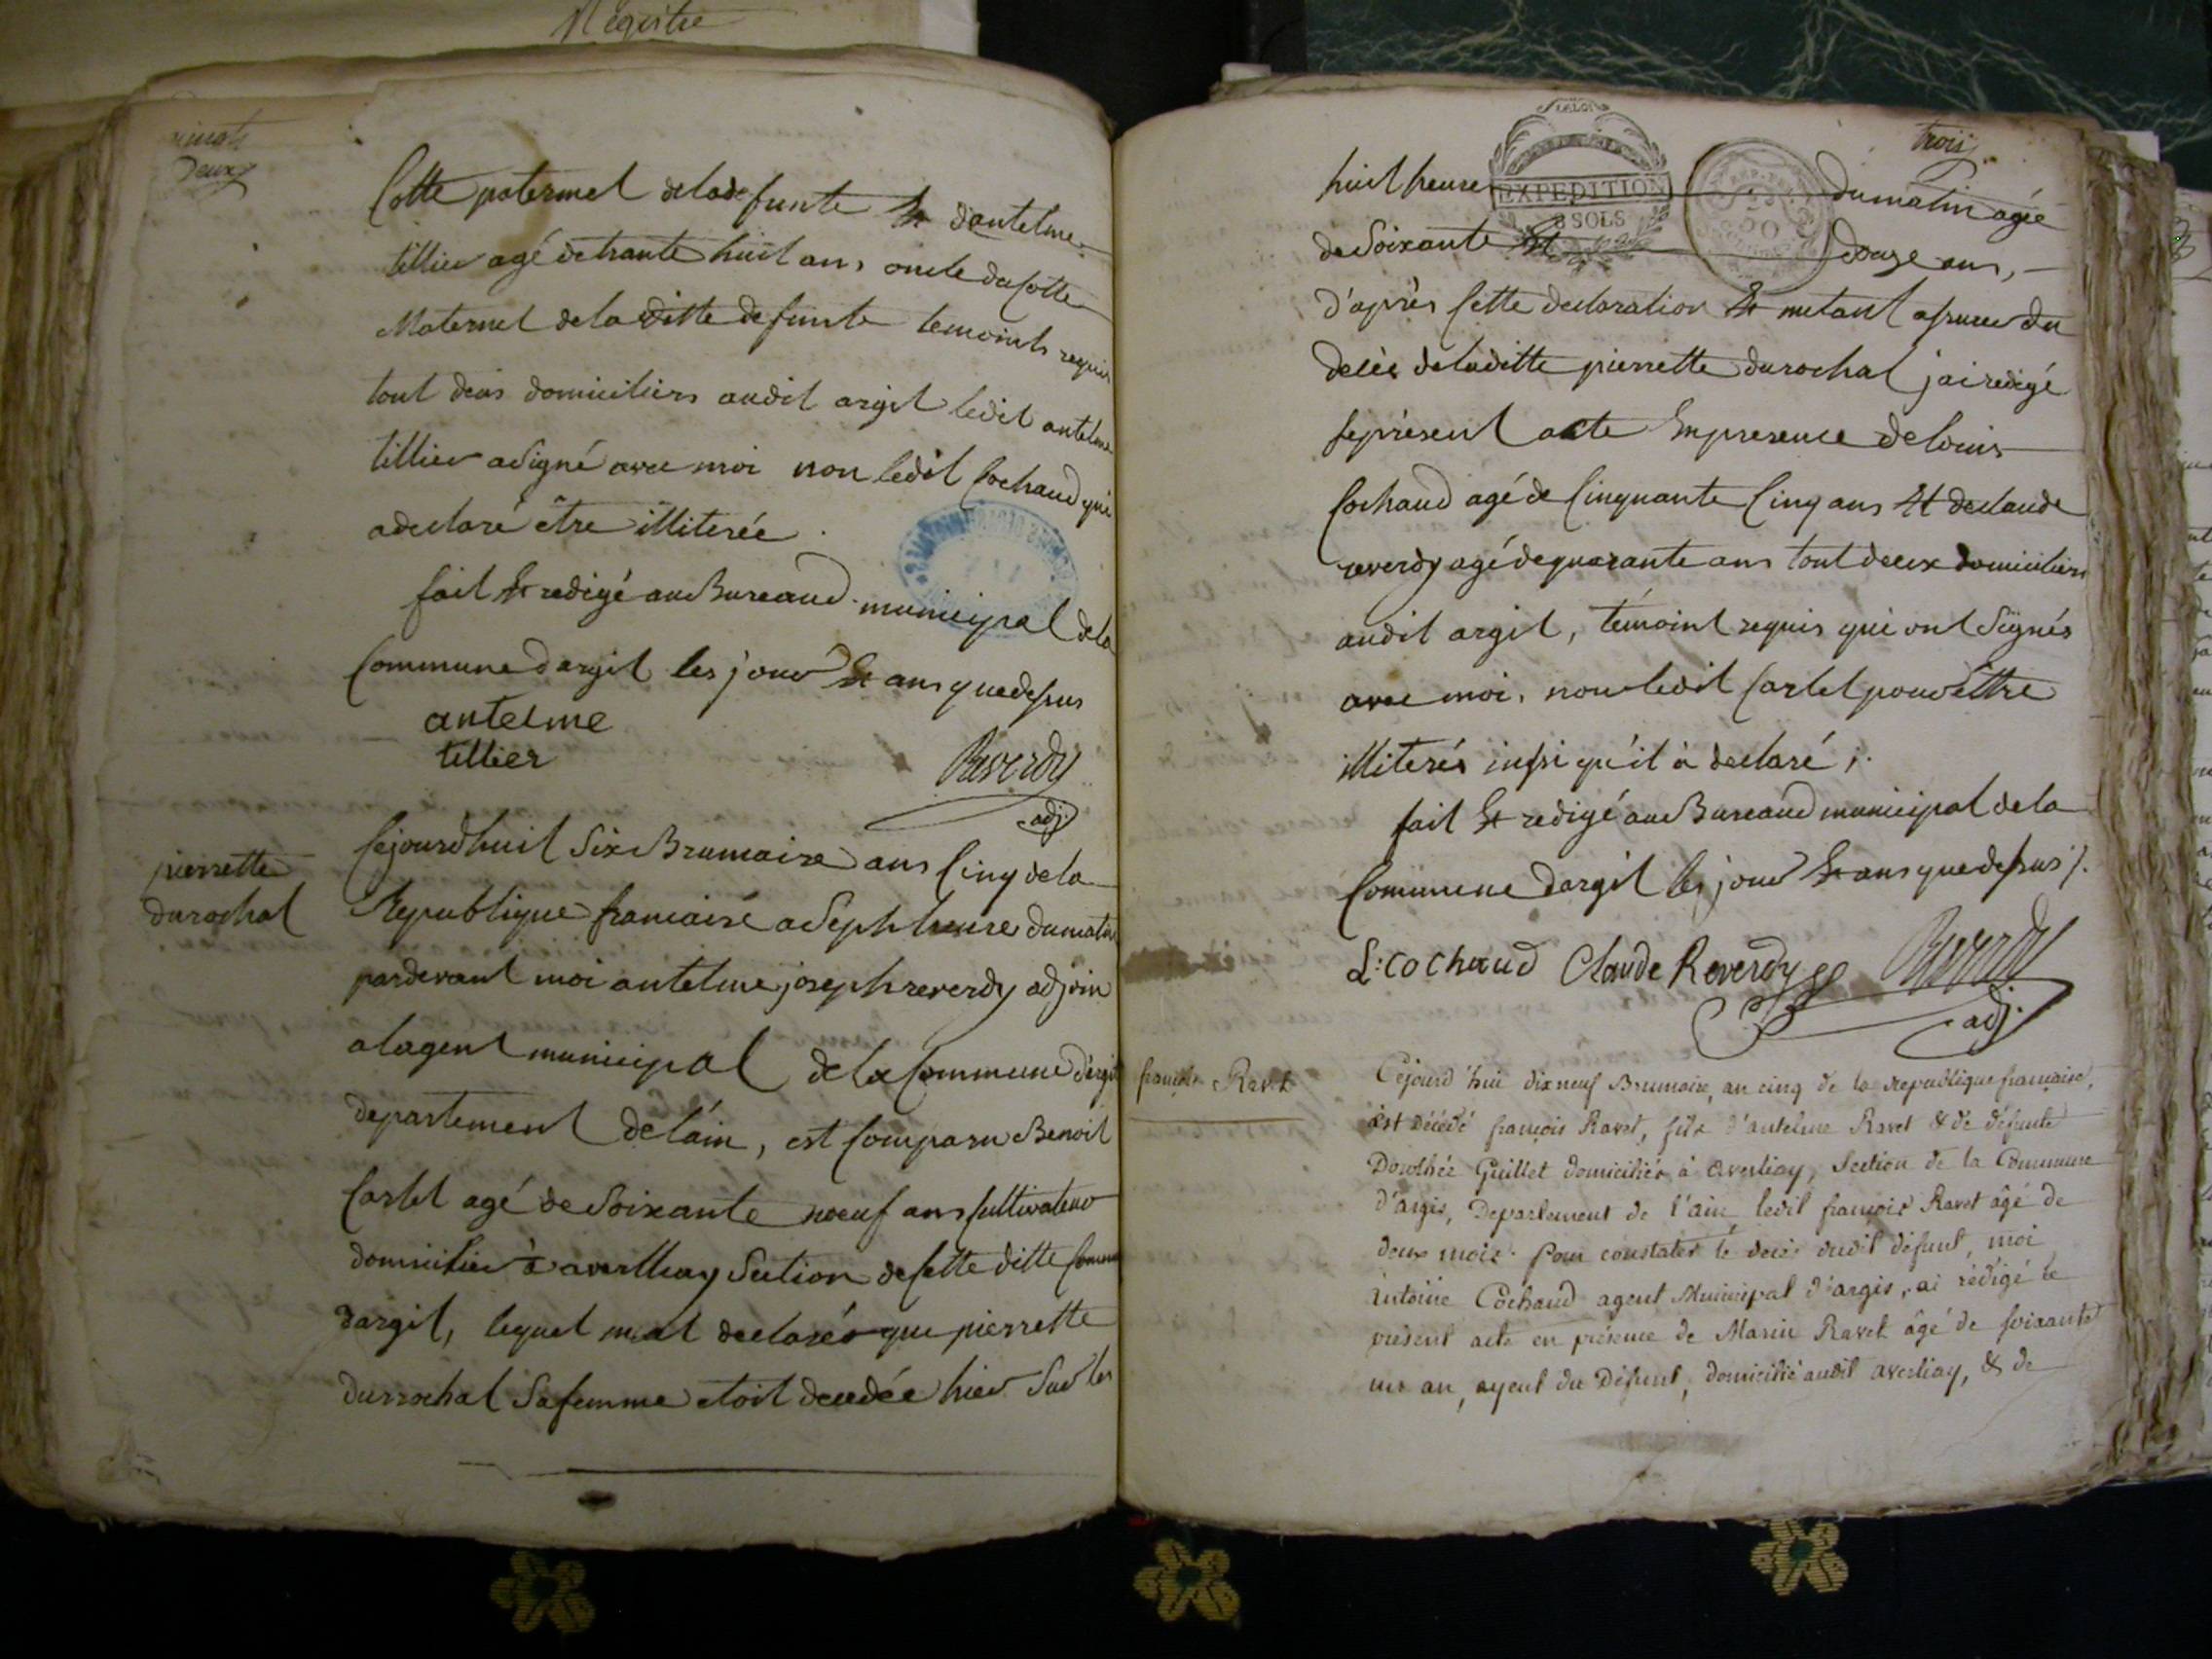 Registre
vingt
Deux
Cotté paternel delade funte & d'antelme
tillier agé de trante huit ans oncle du Cotté
Maternel de la ditte defunte temoints requis
tout deus domiciliers audit argit ledit antelme
tillier a Signé avec moi non ledit Cochaud qui
a declaré être illiterée.
fait & redigé au Bureaud municipal dela
Commune d'argit les jour & ans que dessus
antelme
tillier
Reverdy
adj.
pierrette
durochal
Cejourdhuit Six Brumaire ans Cinq dela
Republique francaise a Sept heure dumatin
pardevant moi antelme joseph reverdy adjoin
a lagent municipal dela Commune d'argit
departement de láin, est Comparu Benoit
Carlet agé de Soixante noeuf ans Cultivateur
domicilier à averlliay Section de Cette ditte Commune
dargit, lequel mat declarés que pierrette
durrochal Sa femme etoit decedée hier Sur les
trois
huit heure dumatin agée
EXPEDITION
8 SOLS
de Soixante & douze ans,
d'après Cette declaration & metant assuree du
decès deladitte pierrette durochal j'ai redigé
le présent acte En presence de louis
Cochaud agé de Cinquante Cinq ans & declaude
reverdy agé de quarante ans tout deux domiciliers
audit argit, témoint requis qui ont Signés
avec moi, non ledit Carlet pour être
illiterés insi qu'il à declaré;.
fait & redigé au Bureaud municipal dela
Commune dargit les jour & ans que dessus /.
L: cochaud Claude Reverdy Reverdy
adj.
françois Ravet
Cejourd'hui dixneuf Brumaire, an cinq de la republique française,
est décédé françois Ravet, fils d'antelme Ravet & de défunte
Dorothée Guillet domiciliés à averliay, Section de la Commune
d'argis, Departement de l'ain, ledit françois Ravet âgé de
deux mois. Pour constater le decès dudit défunt, moi
Antoine Cochaud agent Municipal d'argis, ai rédigé le
présent acte en présence de Marin Ravet âgé de soixante
un an, ayeul du Défunt, domicilié audit averliay, & de